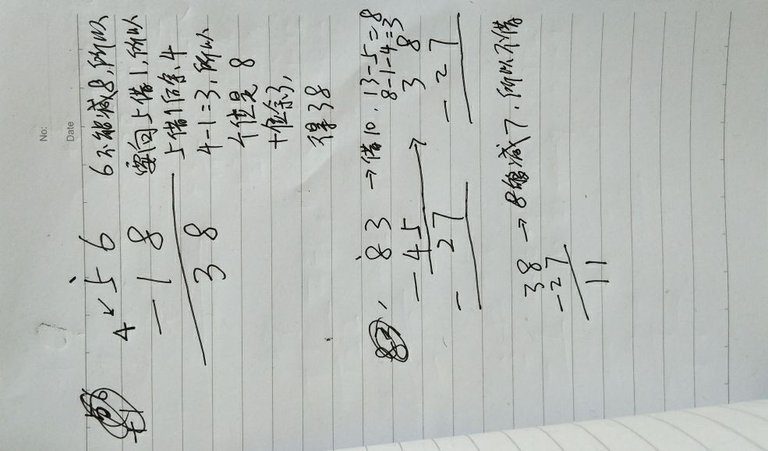 No:
Date
56
4 ↙ 5 6
- 1 8
3 8
6不能减8,所以
要向上借1,所以
5借1后余4
4-1=3,所以
个位是8
十位余3,
得38
83
8 3 → 借10, 13-5=8
8-1-4=3
- 4 5 → 3 8
- 2 7
- 2 7
38 → 8能减7,所以不借
-27
11